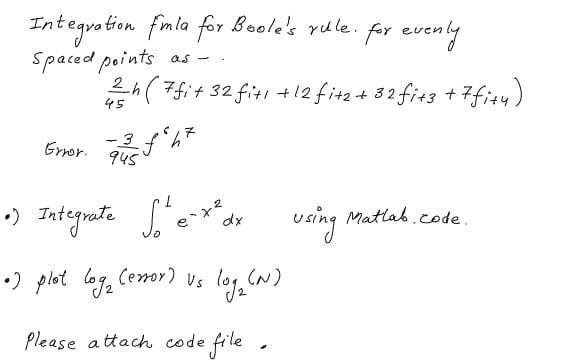 Integration fmla for Boole's rule. for evenly
spaced points as -.
2/45 h ( 7fi + 32 fi+1 + 12 fi+2 + 32 fi+3 + 7fi+4 )
Error. -3/945 f⁶ h⁷
•) Integrate ∫₀¹ e^-x² dx using Matlab.code.
•) plot log₂ (error) vs log₂ (N)
Please attach code file .